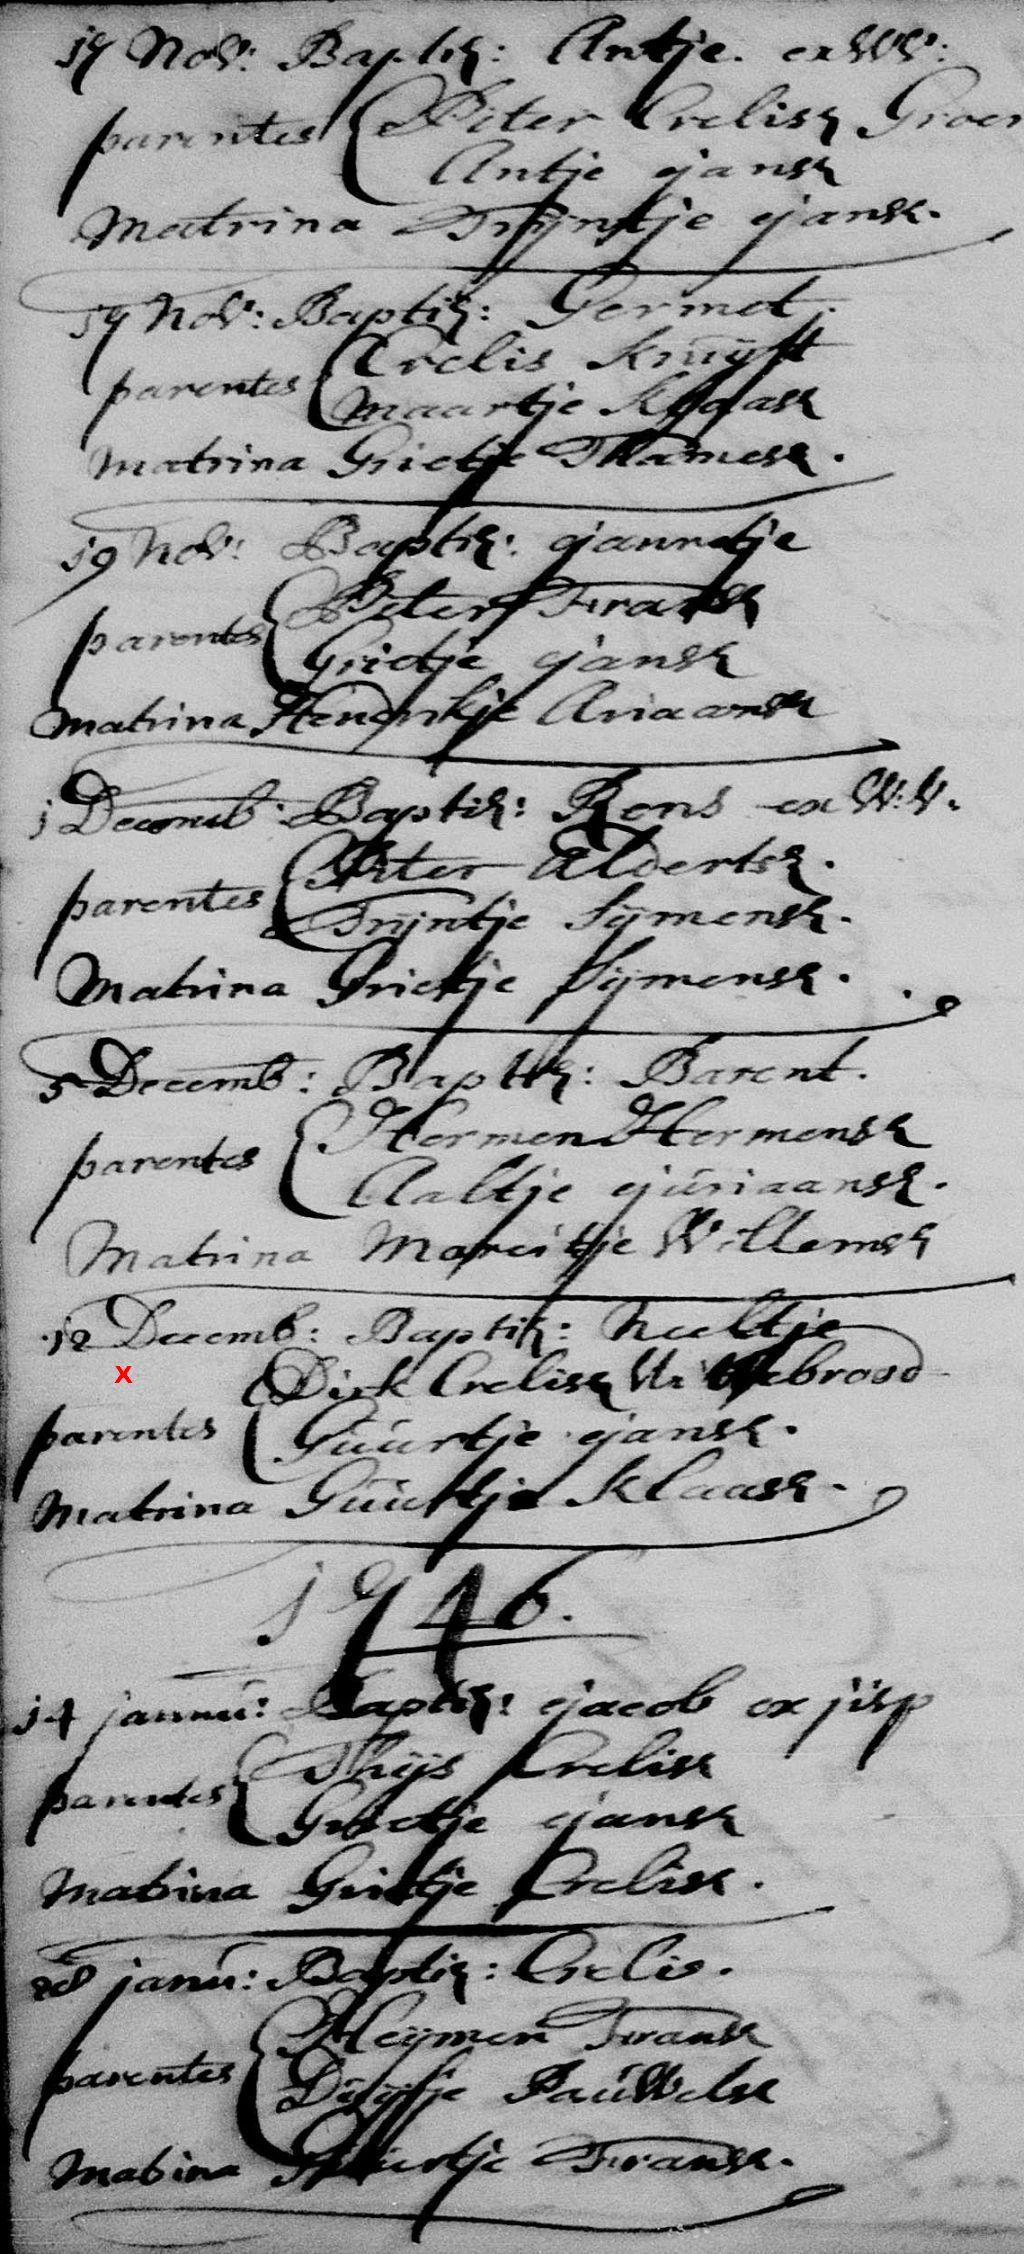 17 Nov: Baptiz: Antje. ex WV:
parentes Piter Crelisz Groen
Antje Jansz
Matrina Trijntje Jansz.
19 Nov: Baptiz: Germet.
parentes Crelis Kruijft
Maartje Klaasz
Matrina Grietje Thamesz.
19 Nov: Baptiz: Jannetje
parentes Piter Fransz
Grietje Jansz
Matrina Hendrikje Ariaansz
1 Decemb: Baptiz: Rens ex W:V.
parentes Piter Aldertsz.
Trijntje Sijmensz.
Matrina Grietje Sijmensz.
5 Decemb: Baptiz: Barent.
parentes Hermen Hermensz
Aaltje Juriaansz.
Matrina Marritje Willemsz
12 Decemb: Baptiz: Neeltje
x
parentes Dirk Crelisz Wittebrood
Guurtje Jansz.
Matrina Guurtje Klaasz.
1746.
14 januu: Baptiz: Jacob ex jisp
parentes Thijs Crelisz
Grietje Jansz
Matrina Grietje Crelisz.
28 janu: Baptiz: Crelis.
parentes Heijmen Fransz
Duijfje Pauwelsz
Matrina Guurtje Fransz.